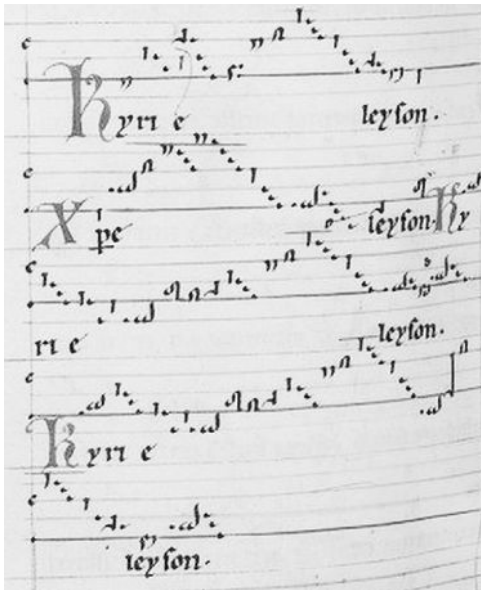 Kyrie leyson.
Xpe leyson. Ky
rie leyson.
Kyrie
leyson.